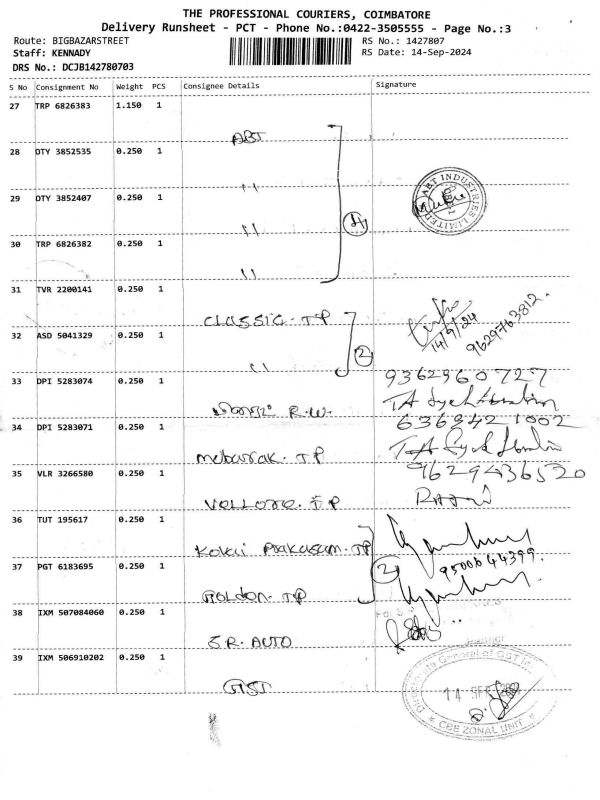 THE PROFESSIONAL COURIERS, COIMBATORE
Delivery Runsheet - PCT - Phone No.:0422-3505555 - Page No.:3
Route: BIGBAZARSTREET RS No.: 1427807
Staff: KENNADY RS Date: 14-Sep-2024
DRS No.: DCJB142780703
S No Consignment No Weight PCS Consignee Details Signature
27 TRP 6826383 1.150 1
ABT
28 OTY 3852535 0.250 1
"
29 OTY 3852407 0.250 1
" 4
ABT INDUSTRIES LIMITED
30 TRP 6826382 0.250 1
"
31 TVR 2200141 0.250 1
CLASSIC. TP
14/9/24 9629763812.
32 ASD 5041329 0.250 1
" 2
33 DPI 5283074 0.250 1 9362960727
R.W.
34 DPI 5283071 0.250 1 6368421002
mubarak. TP
35 VLR 3266580 0.250 1 9629436520
VELLORE. TP
36 TUT 195617 0.250 1
Kovai Prakasam. TP
37 PGT 6183695 0.250 1 2 9500644399.
GOLDEN. TP
38 IXM 507084060 0.250 1
S.R. AUTO
Partner
39 IXM 506910202 0.250 1
GST
Directorate General of GST
14 SEP
* CBE ZONAL UNIT *